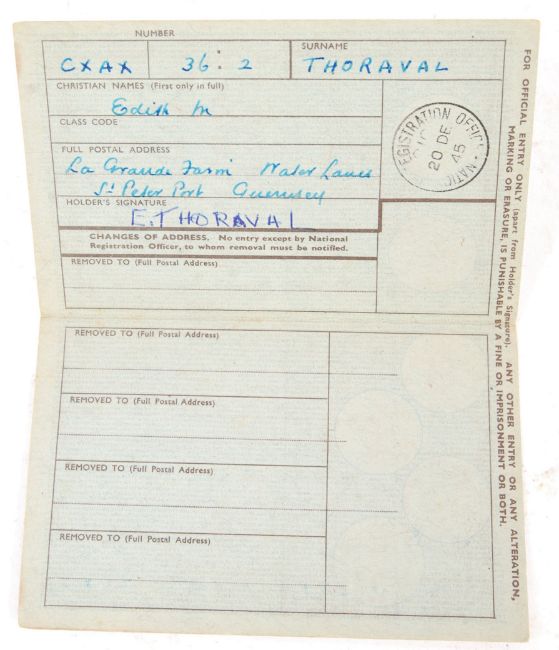 NUMBER
SURNAME
CXAX 36 : 2 THORAVAL
CHRISTIAN NAMES (First only in full)
Edith M
CLASS CODE
FULL POSTAL ADDRESS
La Grande Farm Water Lanes
St Peter Port Guernsey
HOLDER'S SIGNATURE
E. THORAVAL
CHANGES OF ADDRESS. No entry except by National
Registration Officer, to whom removal must be notified.
REMOVED TO (Full Postal Address)
REMOVED TO (Full Postal Address)
REMOVED TO (Full Postal Address)
REMOVED TO (Full Postal Address)
REMOVED TO (Full Postal Address)
EGISTRATION OFFIC
NATIO
20 DE
45
FOR OFFICIAL ENTRY ONLY (apart from Holder's Signature). ANY OTHER ENTRY OR ANY ALTERATION,
MARKING OR ERASURE, IS PUNISHABLE BY A FINE OR IMPRISONMENT OR BOTH.